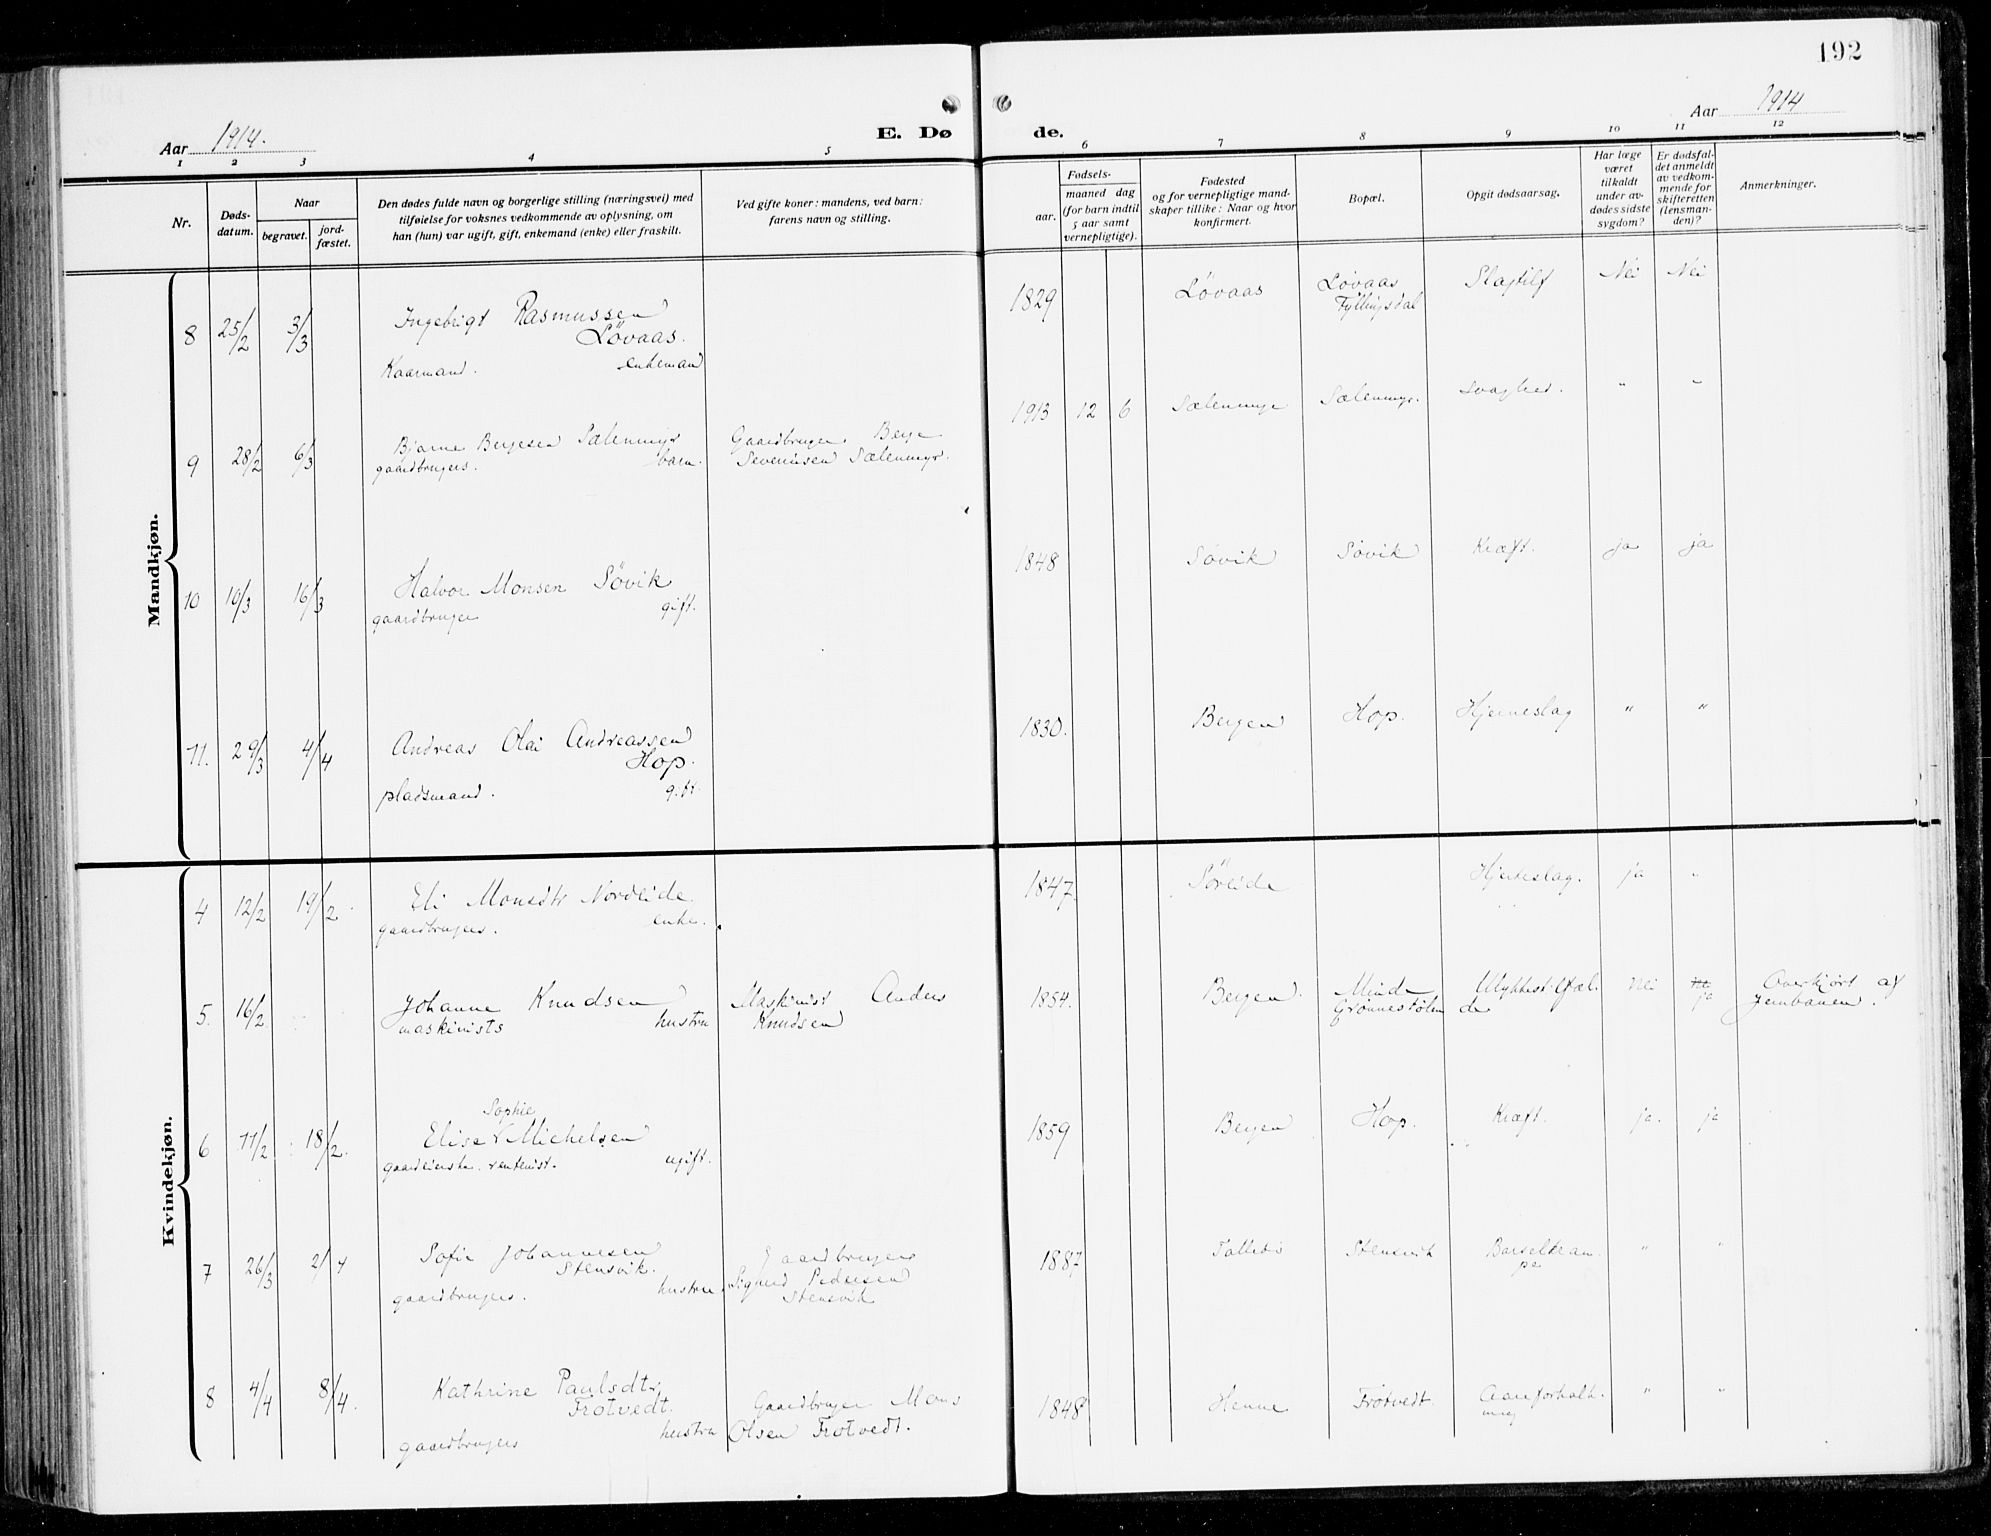 192
Aar 1914.
E. Dø
de.
Aar 1914
1 2 3 4 5 6 7 8 9 10 11 12
Nr.
Døds-
datum.
Naar
begravet.
jord-
fæstet.
Den dødes fulde navn og borgerlige stilling (næringsvei) med
tilføielse for voksnes vedkommende av oplysning, om
han (hun) var ugift, gift, enkemand (enke) eller fraskilt.
Ved gifte koner: mandens, ved barn:
farens navn og stilling.
Fødsels-
aar.
maaned dag
(for barn indtil
5 aar samt
vernepligtige).
Fødested
og for vernepligtige mand-
skaper tillike: Naar og hvor
konfirmert.
Bopæl.
Opgit dødsaarsag.
Har læge
været
tilkaldt
under av-
dødes sidste
sygdom?
Er dødsfal-
det anmeldt
av vedkom-
mende for
skifteretten
(lensman-
den)?
Anmerkninger.
Mandkjøn.
8 25/2 3/3 Ingebrigt Rasmussen
Løvaas.
Kaarmand. enkemand
1829 Løvaas Løvaas
Fyllingsdal
Slagtilf Nei Nei
9 28/2 6/3 Bjarne Bergesen Sælenmyr
gaardbrugers. barn.
Gaardbruger Berge
Severinsen Sælenmyr.
1913 12 6 Sælenmyr Sælenmyr. Svaghed. " "
10 10/3 16/3 Halvor Monsen Søvik
gaardbruger gift.
1848 Søvik Søvik Kræft. ja ja
11. 29/3 4/4 Andreas Olai Andreassen
Hop.
pladsmand. gift.
1830. Bergen Hop. Hjerneslag " "
Kvindekjøn.
4 12/2 19/2. Eli Monsdtr Nordeide.
gaardbrugers. enke.
1847. Søreide Hjerteslag. ja "
5. 16/2 Johanne Knudsen
maskinists hustru
Maskinist Anders
Knudsen
1854. Bergen. Minde
Grønnestølen
Ulykkestilfæl-
de
Nei ja
Overkjørt af
Jernbanen.
6 11/2 18/2. Sophie
Elise V Michelsen
gaardeierske. rentenist. ugift.
1859 Bergen Hop. Kræft. ja. ja
7 26/3 2/4 Sofie Johannesen
Stensvik.
gaardbrugers. hustru.
Gaardbruger
Sigurd Pedersen
Stensvik
1887 Stensvik Barselkram-
pe
" "
8 4/4 8/4. Kathrine Paulsdtr
Frotvedt.
gaardbrugers hustru
Gaardbruger Mons
Olsen Frotvedt.
1848 Henne Frotvedt. " "